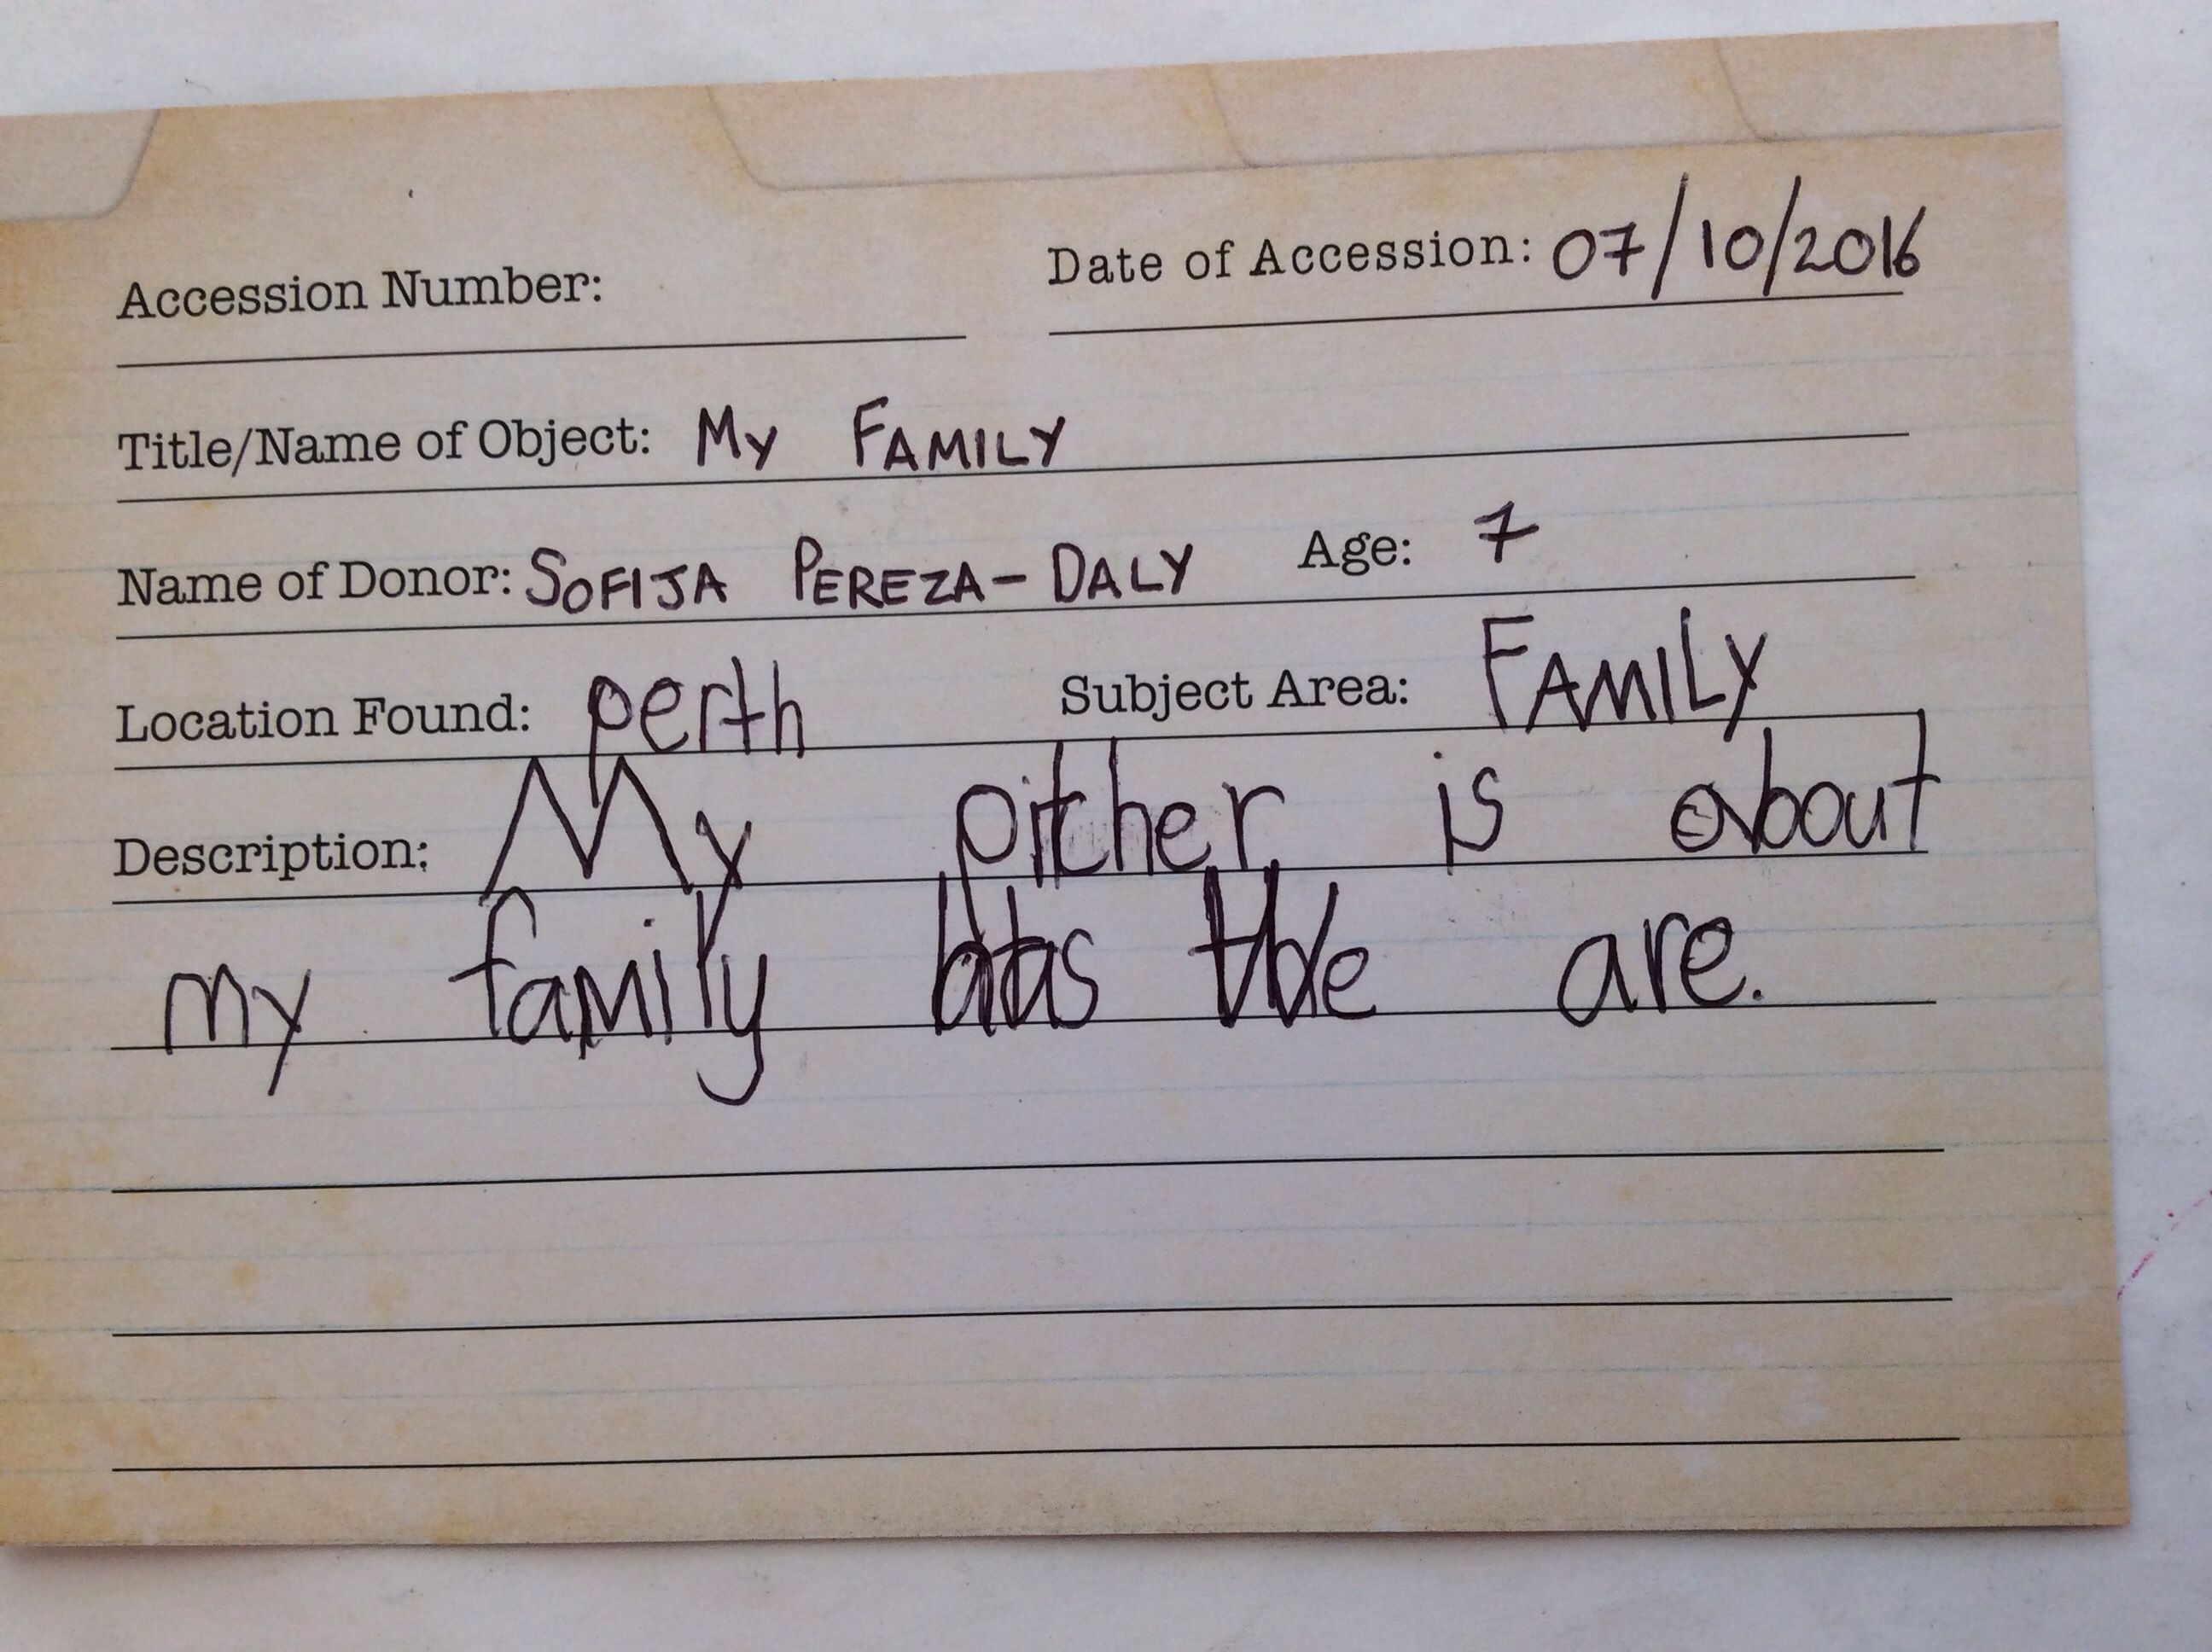 Accession Number: Date of Accession: 07/10/2016
Title/Name of Object: My FAMILY
Name of Donor: SOFIJA PEREZA-DALY Age: 7
Location Found: perth Subject Area: FAMILY
Description: My pitcher is about
my family are.